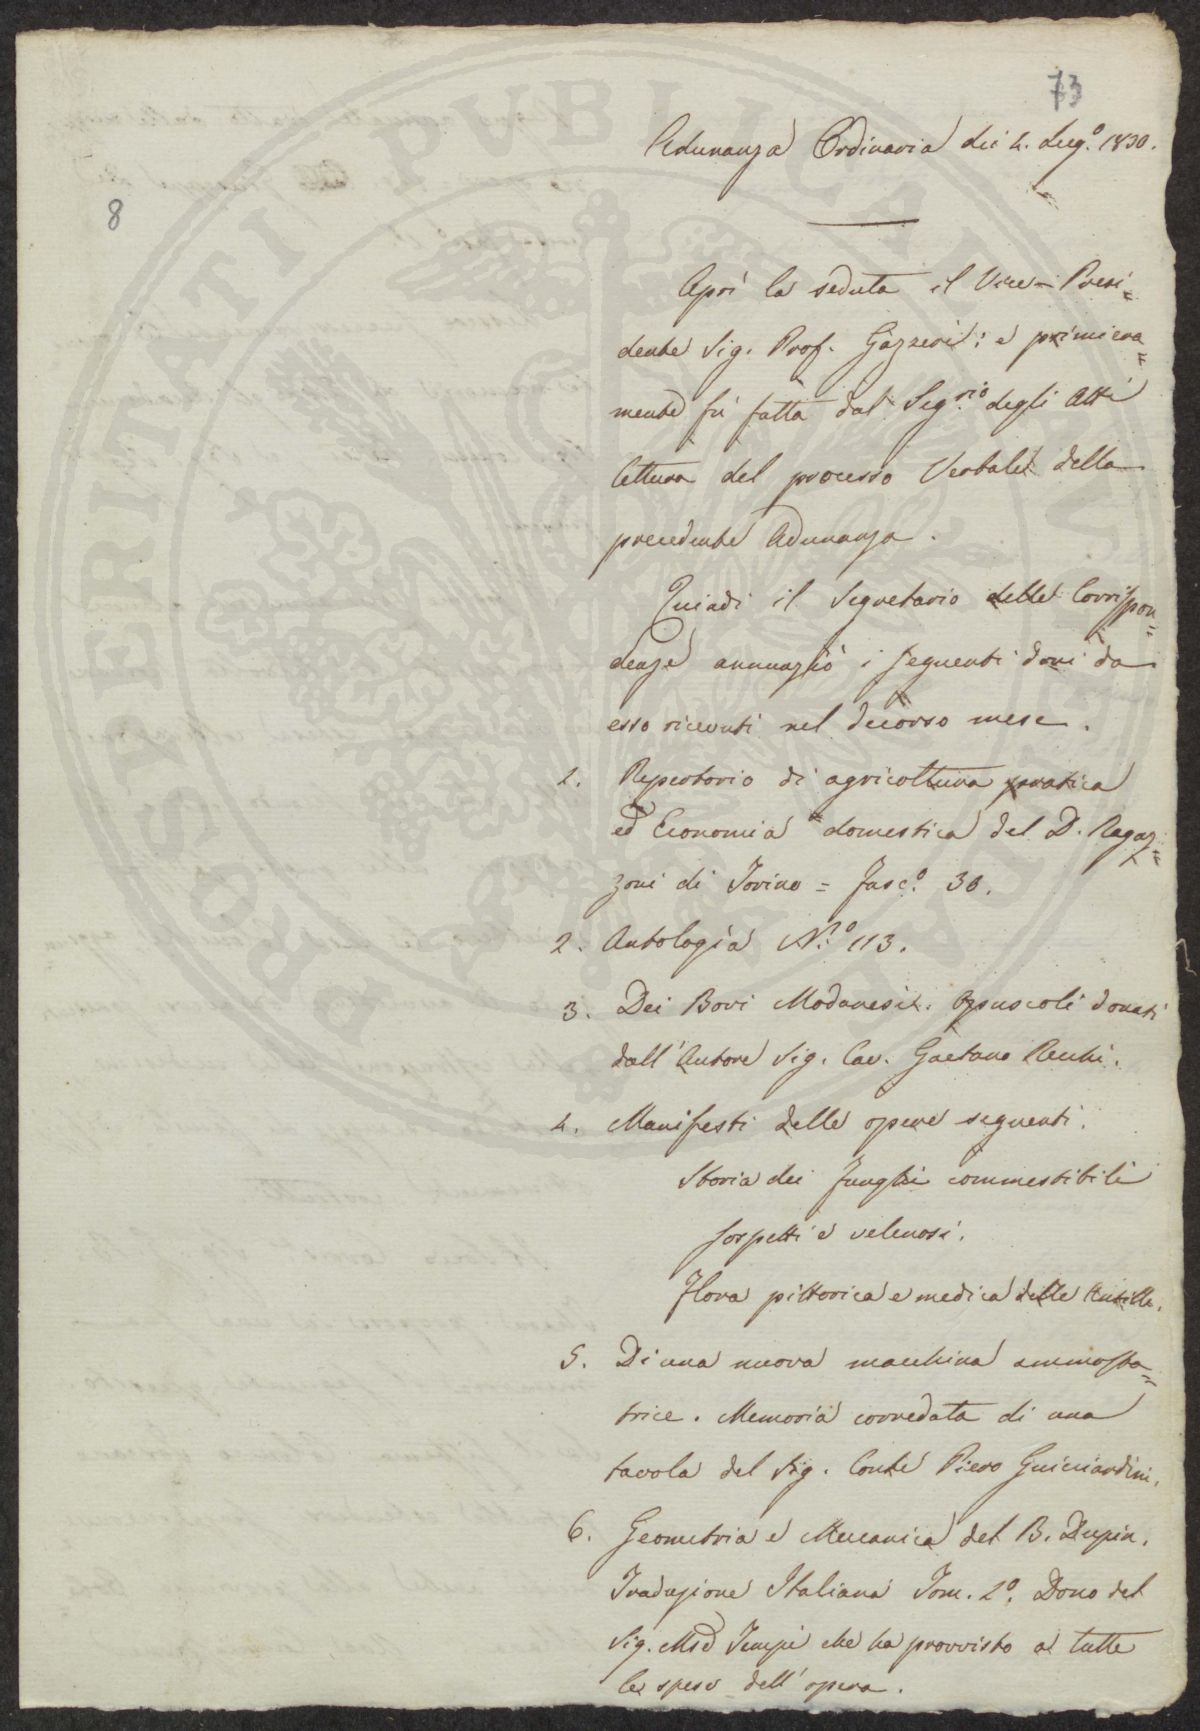 73
Adunanza Ordinaria dei 4. Lug.º 1830.
8
Aprì la seduta il Vice-Presi=
dente Sig. Prof. Gazzeri; e primiera=
mente fù fatta dal Seg.rio degli Atti
lettura del processo Verbale della
precedente Adunanza.
Quindi il Segretario delle Corrispon=
denze annunziò i seguenti doni da
esso ricevuti nel decorso mese.
1. Repertorio di agricoltura pratica
ed Economia domestica del D. Ragaz=
zoni di Torino = Fasc.º 30.
2. Antologia N.º 113.
3. Dei Bovi Modanesi. Opuscoli donati
dall'Autore Sig. Cav. Gaetano Recchi.
4. Manifesti delle opere seguenti.
Storia dei funghi commestibili
sospetti e velenosi.
Flora pittorica e medica delle Antille.
5. Di una nuova macchina ammosta=
trice. Memoria corredata di una
tavola del Sig. Conte Piero Guicciardini.
6. Geometria e Meccanica del B. Dupin.
Traduzione Italiana Tom. 2º. Dono del
Sig. Tempi che ha provvisto a tutte
le spese dell'opera.
PROSPERITATI PUBLICAE AUGENDAE